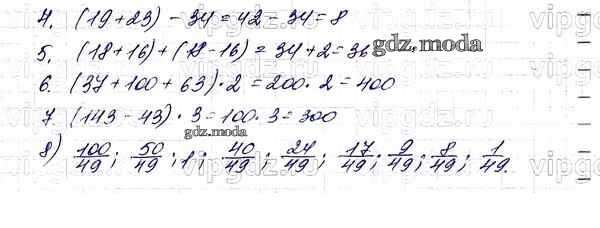 4. (19+23) - 34 = 42 - 34 = 8
5. (18+16) + (18-16) = 34+2 = 36
gdz.moda
6. (37+100+63)·2 = 200·2 = 400
7. (143-43)·3 = 100·3 = 300
gdz.moda
8) 100/49; 50/49; 1; 40/49; 24/49; 17/49; 9/49; 8/49; 1/49.
vipgdz.ru